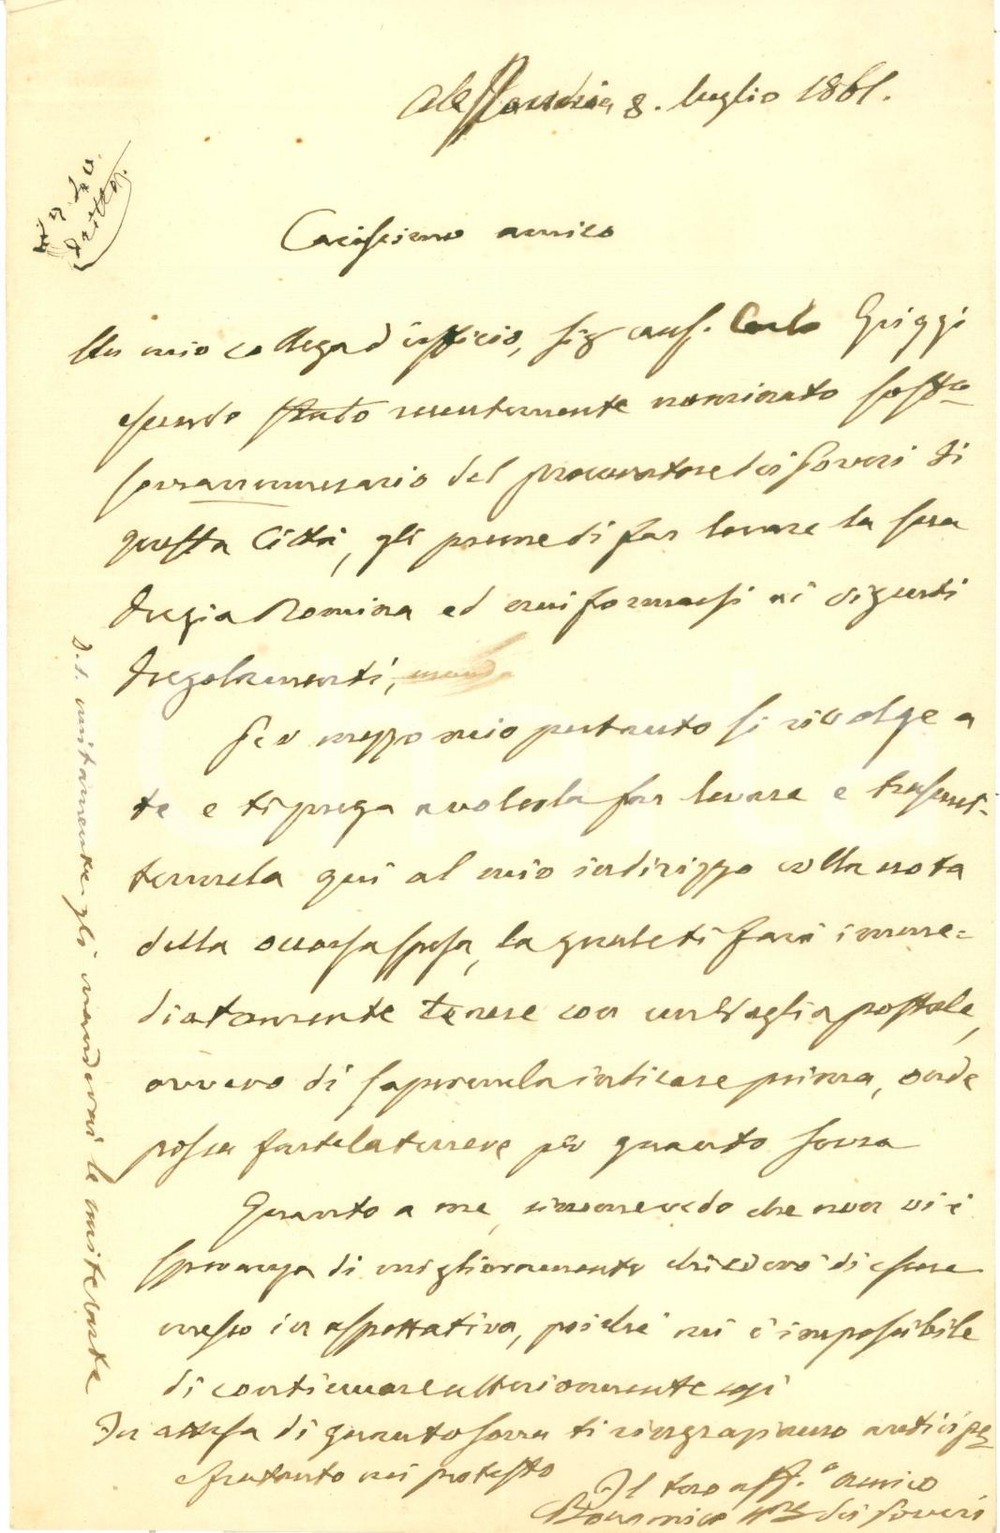 Alessandria 8. luglio 1861.
Carissimo amico
Un mio collega d'ufficio, sig caus. Carlo Griggi
essendo stato recentemente nominato sost.o
sovrannumerario del procuratore dei poveri di
questa Città, gli preme di far levare la sua
Regia Nomina ed uniformarsi ai vigenti
Regolamenti,
Per mezzo mio pertanto si rivolge a
te e ti prega a volerla far levare e trasmet-
termela qui al mio indirizzo colla nota
della occorsa spesa, la quale ti farà imme=
diatamente tenere con un Vaglia postale,
ovvero di sapermela indicare prima, onde
possa fartela tenere per quanto sovra
Quanto a me, sino a che non vi è
speranza di miglioramento chiederò di essere
messo in aspettativa, poichè mi è impossibile
di continuare ulteriormente così
In attesa di quanto sovra ti ringraziamo
e frattanto mi protesto
Il tuo aff.o amico
Domenico dei poveri
P.S. unitamente gli manderai le unite carte